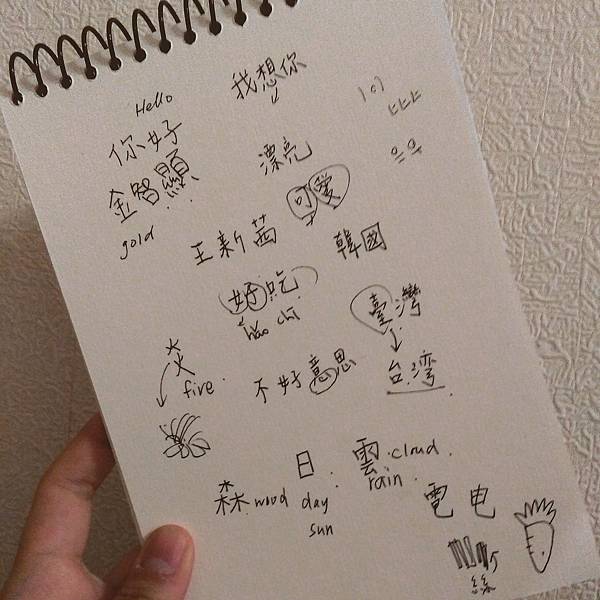 Hello
我想你
你好
漂亮
ㅌㅌㅌ
으으
金智顯
gold
可愛
王新茜
韓國
好吃
hǎo chī
臺灣
台湾
炎
fire.
不好意思
森 wood
日.
day
sun
雲.cloud.
rain.
電 电
絲